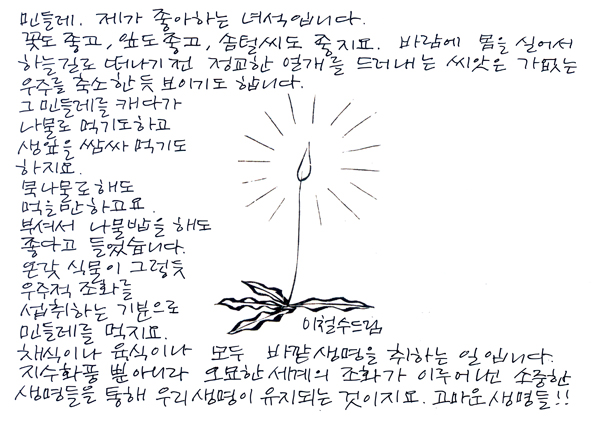 민들레. 제가 좋아하는 녀석입니다.
꽃도 좋고, 잎도 좋고, 솜털씨도 좋지요. 바람에 몸을 실어서
하늘길로 떠나기 전 정교한 얼개를 드러내는 씨앗은 가없는
우주를 축소한듯 보이기도 합니다.
그 민들레를 캐다가
나물로 먹기도하고
생잎을 쌈싸 먹기도
하지요.
묵나물로 해도
먹을만하고요.
부셔서 나물밥을 해도
좋다고 들었습니다.
온갖 식물이 그렇듯
우주적 조화를
섭취하는 기분으로
민들레를 먹지요.
이철수드림
채식이나 육식이나 모두 바깥생명을 취하는 일입니다.
지수화풍 뿐아니라 오묘한 세계의 조화가 이루어낸 소중한
생명들을 통해 우리생명이 유지되는 것이지요. 고마운 생명들!!